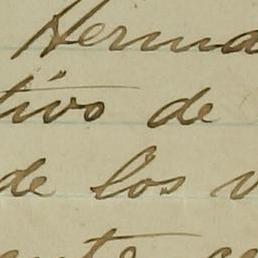 Herma
tivo de
de los v